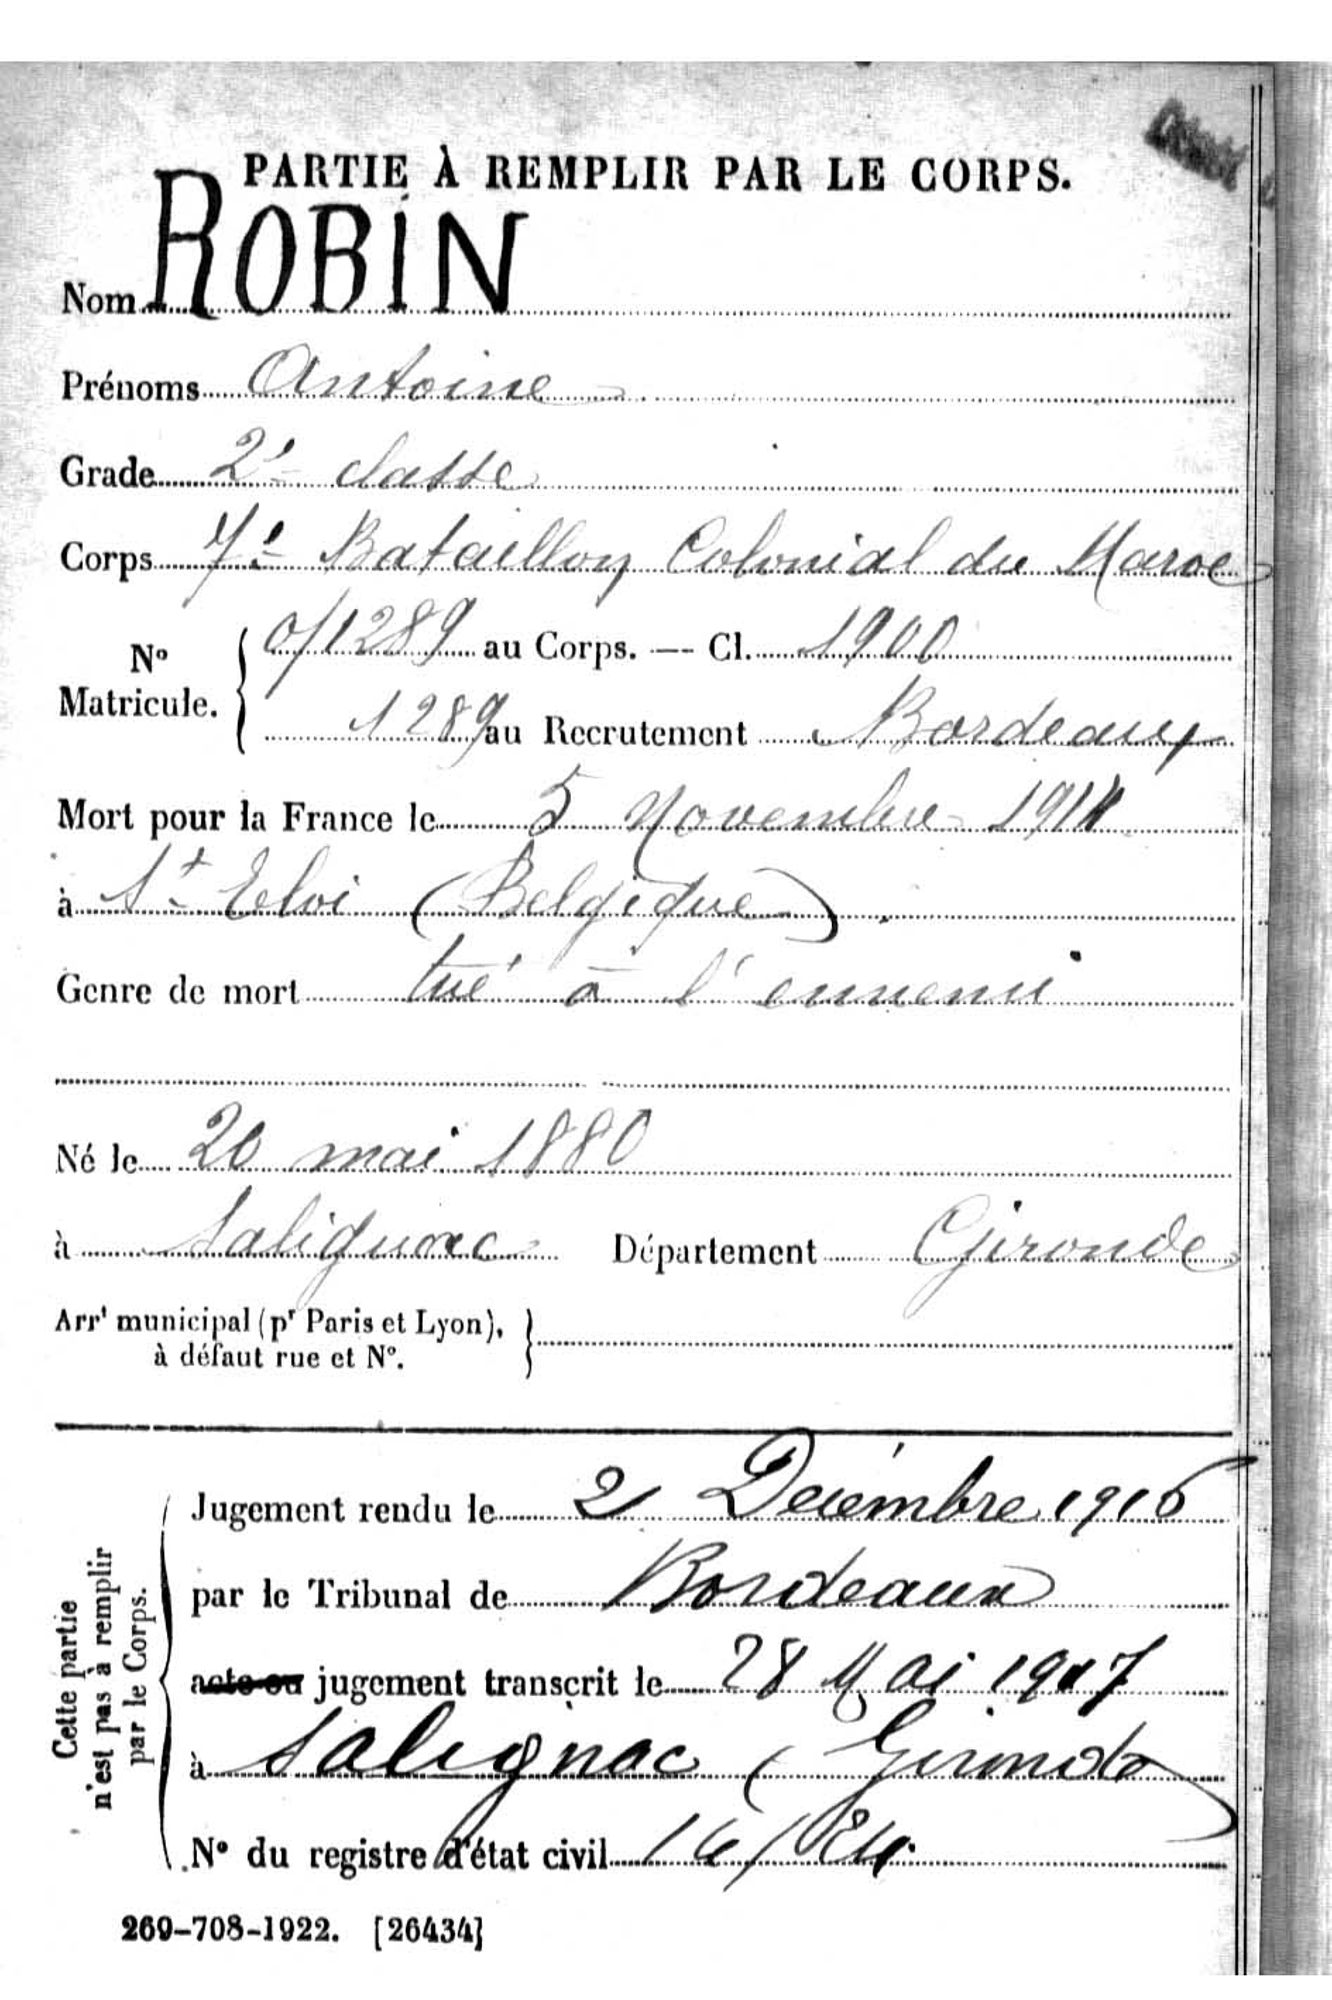 PARTIE À REMPLIR PAR LE CORPS.
Nom ROBIN
Prénoms Antoine
Grade 2e classe
Corps 7e Bataillon Colonial du Maroc
No Matricule. { 0/1289 au Corps. — Cl. 1900
1289 au Recrutement Bordeaux
Mort pour la France le 5 Novembre 1914
à St Eloi (Belgique).
Genre de mort tué à l'ennemi
Né le 20 mai 1880
à Salignac Département Gironde
Arrt municipal (pr Paris et Lyon), }
à défaut rue et No.
Cette partie
n'est pas à remplir
par le Corps.
Jugement rendu le 2 Décembre 1916
par le Tribunal de Bordeaux
acte ou jugement transcrit le 28 Mai 1917
à Salignac (Gironde)
No du registre d'état civil
269-708-1922. [26434]